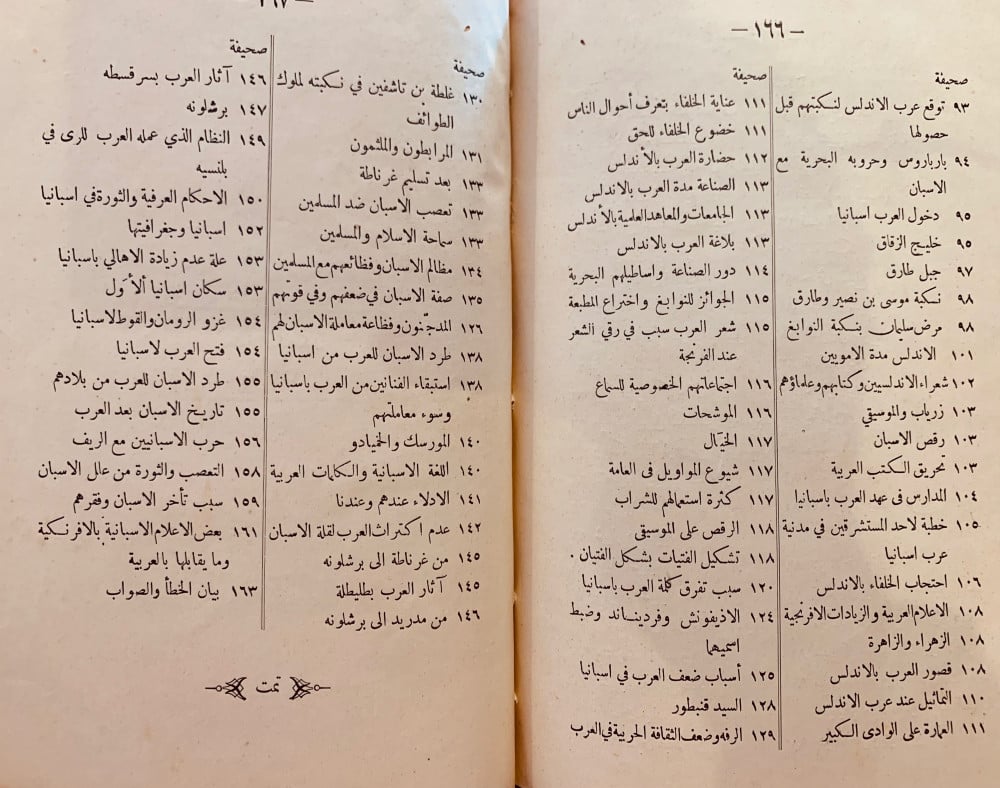 — ١٦٦ —
صحيفة
٩٣ توقع عرب الاندلس لنكبتهم قبل
حصولها
٩٤ بارباروس وحروبه البحرية مع
الاسبان
٩٥ دخول العرب اسبانيا
٩٥ خليج الزقاق
٩٧ جبل طارق
٩٨ نكبة موسى بن نصير وطارق
٩٨ مرض سليمان بنكبة النوابغ
١٠١ الاندلس مدة الامويين
١٠٢ شعراء الاندلسيين وكتابهم وعلماؤهم
١٠٣ زرياب والموسيقي
١٠٣ رقص الاسبان
١٠٣ تحريق الكتب العربية
١٠٤ المدارس فى عهد العرب باسبانيا
١٠٥ خطبة لاحد المستشرقين في مدنية
عرب اسبانيا
١٠٦ احتجاب الخلفاء بالاندلس
١٠٨ الاعلام العربية والزيادات الافرنجية
١٠٨ الزهراء والزاهرة
١٠٨ قصور العرب بالاندلس
١١٠ التماثيل عند عرب الاندلس
١١١ العمارة على الوادى الكبير
صحيفة
١١١ عناية الخلفاء بتعرف أحوال الناس
١١١ خضوع الخلفاء للحق
١١٢ حضارة العرب بالأندلس
١١٣ الصناعة مدة العرب بالاندلس
١١٣ الجامعات والمعاهد العلمية بالأندلس
١١٣ بلاغة العرب بالاندلس
١١٤ دور الصناعة واساطيلهم البحرية
١١٥ الجوائز للنوابغ واختراع المطبعة
١١٥ شعر العرب سبب في رقي الشعر
عند الفرنجة
١١٦ اجتماعاتهم الخصوصية للسماع
١١٦ الموشحات
١١٧ الخيال
١١٧ شيوع المواويل فى العامة
١١٧ كثرة استعمالهم للشراب
١١٨ الرقص على الموسيقي
١١٨ تشكيل الفتيات بشكل الفتيان .
١٢٠ سبب تفرق كلمة العرب باسبانيا
١٢٤ الاذيفونش وفرديناند وضبط
اسميهما
١٢٥ أسباب ضعف العرب في اسبانيا
١٢٨ السيد قنبطور
١٢٩ الرفه وضعف الثقافة الحربية في العرب
— ١٦٧ —
صحيفة
١٣٠ غلطة بن تاشفين في نكبته لملوك
الطوائف
١٣١ المرابطون والملثمون
١٣٣ بعد تسليم غرناطة
١٣٣ تعصب الاسبان ضد المسلمين
١٣٣ سماحة الاسلام والمسلمين
١٣٤ مظالم الاسبان وفظائعهم مع المسلمين
١٣٥ صفة الاسبان في ضعفهم وفي قوتهم
١٢٦ المدجّنون وفظاعة معاملة الاسبان لهم
١٣٨ طرد الاسبان للعرب من اسبانيا
١٣٨ استبقاء الفنانين من العرب باسبانيا
وسوء معاملتهم
١٤٠ المورسك والخميادو
١٤٠ اللغة الاسبانية والكلمات العربية
١٤١ الادلاء عندهم وعندنا
١٤٢ عدم اكتراث العرب لقلة الاسبان
١٤٥ من غرناطة الى برشلونه
١٤٥ آثار العرب بطليطلة
١٤٦ من مدريد الى برشلونه
صحيفة
١٤٦ آثار العرب بسرقسطه
١٤٧ برشلونه
١٤٩ النظام الذي عمله العرب للرى في
بلنسيه
١٥٠ الاحكام العرفية والثورة في اسبانيا
١٥٢ اسبانيا وجغرافيتها
١٥٣ علة عدم زيادة الاهالي باسبانيا
١٥٣ سكان اسبانيا الأَول
١٥٤ غزو الرومان والقوط لاسبانيا
١٥٤ فتح العرب لاسبانيا
١٥٥ طرد الاسبان للعرب من بلادهم
١٥٥ تاريخ الاسبان بعد العرب
١٥٦ حرب الاسبانيين مع الريف
١٥٨ التعصب والثورة من علل الاسبان
١٥٩ سبب تأخر الاسبان وفقرهم
١٦١ بعض الاعلام الاسبانية بالافرنكية
وما يقابلها بالعربية
١٦٣ بيان الخطأ والصواب
تمت